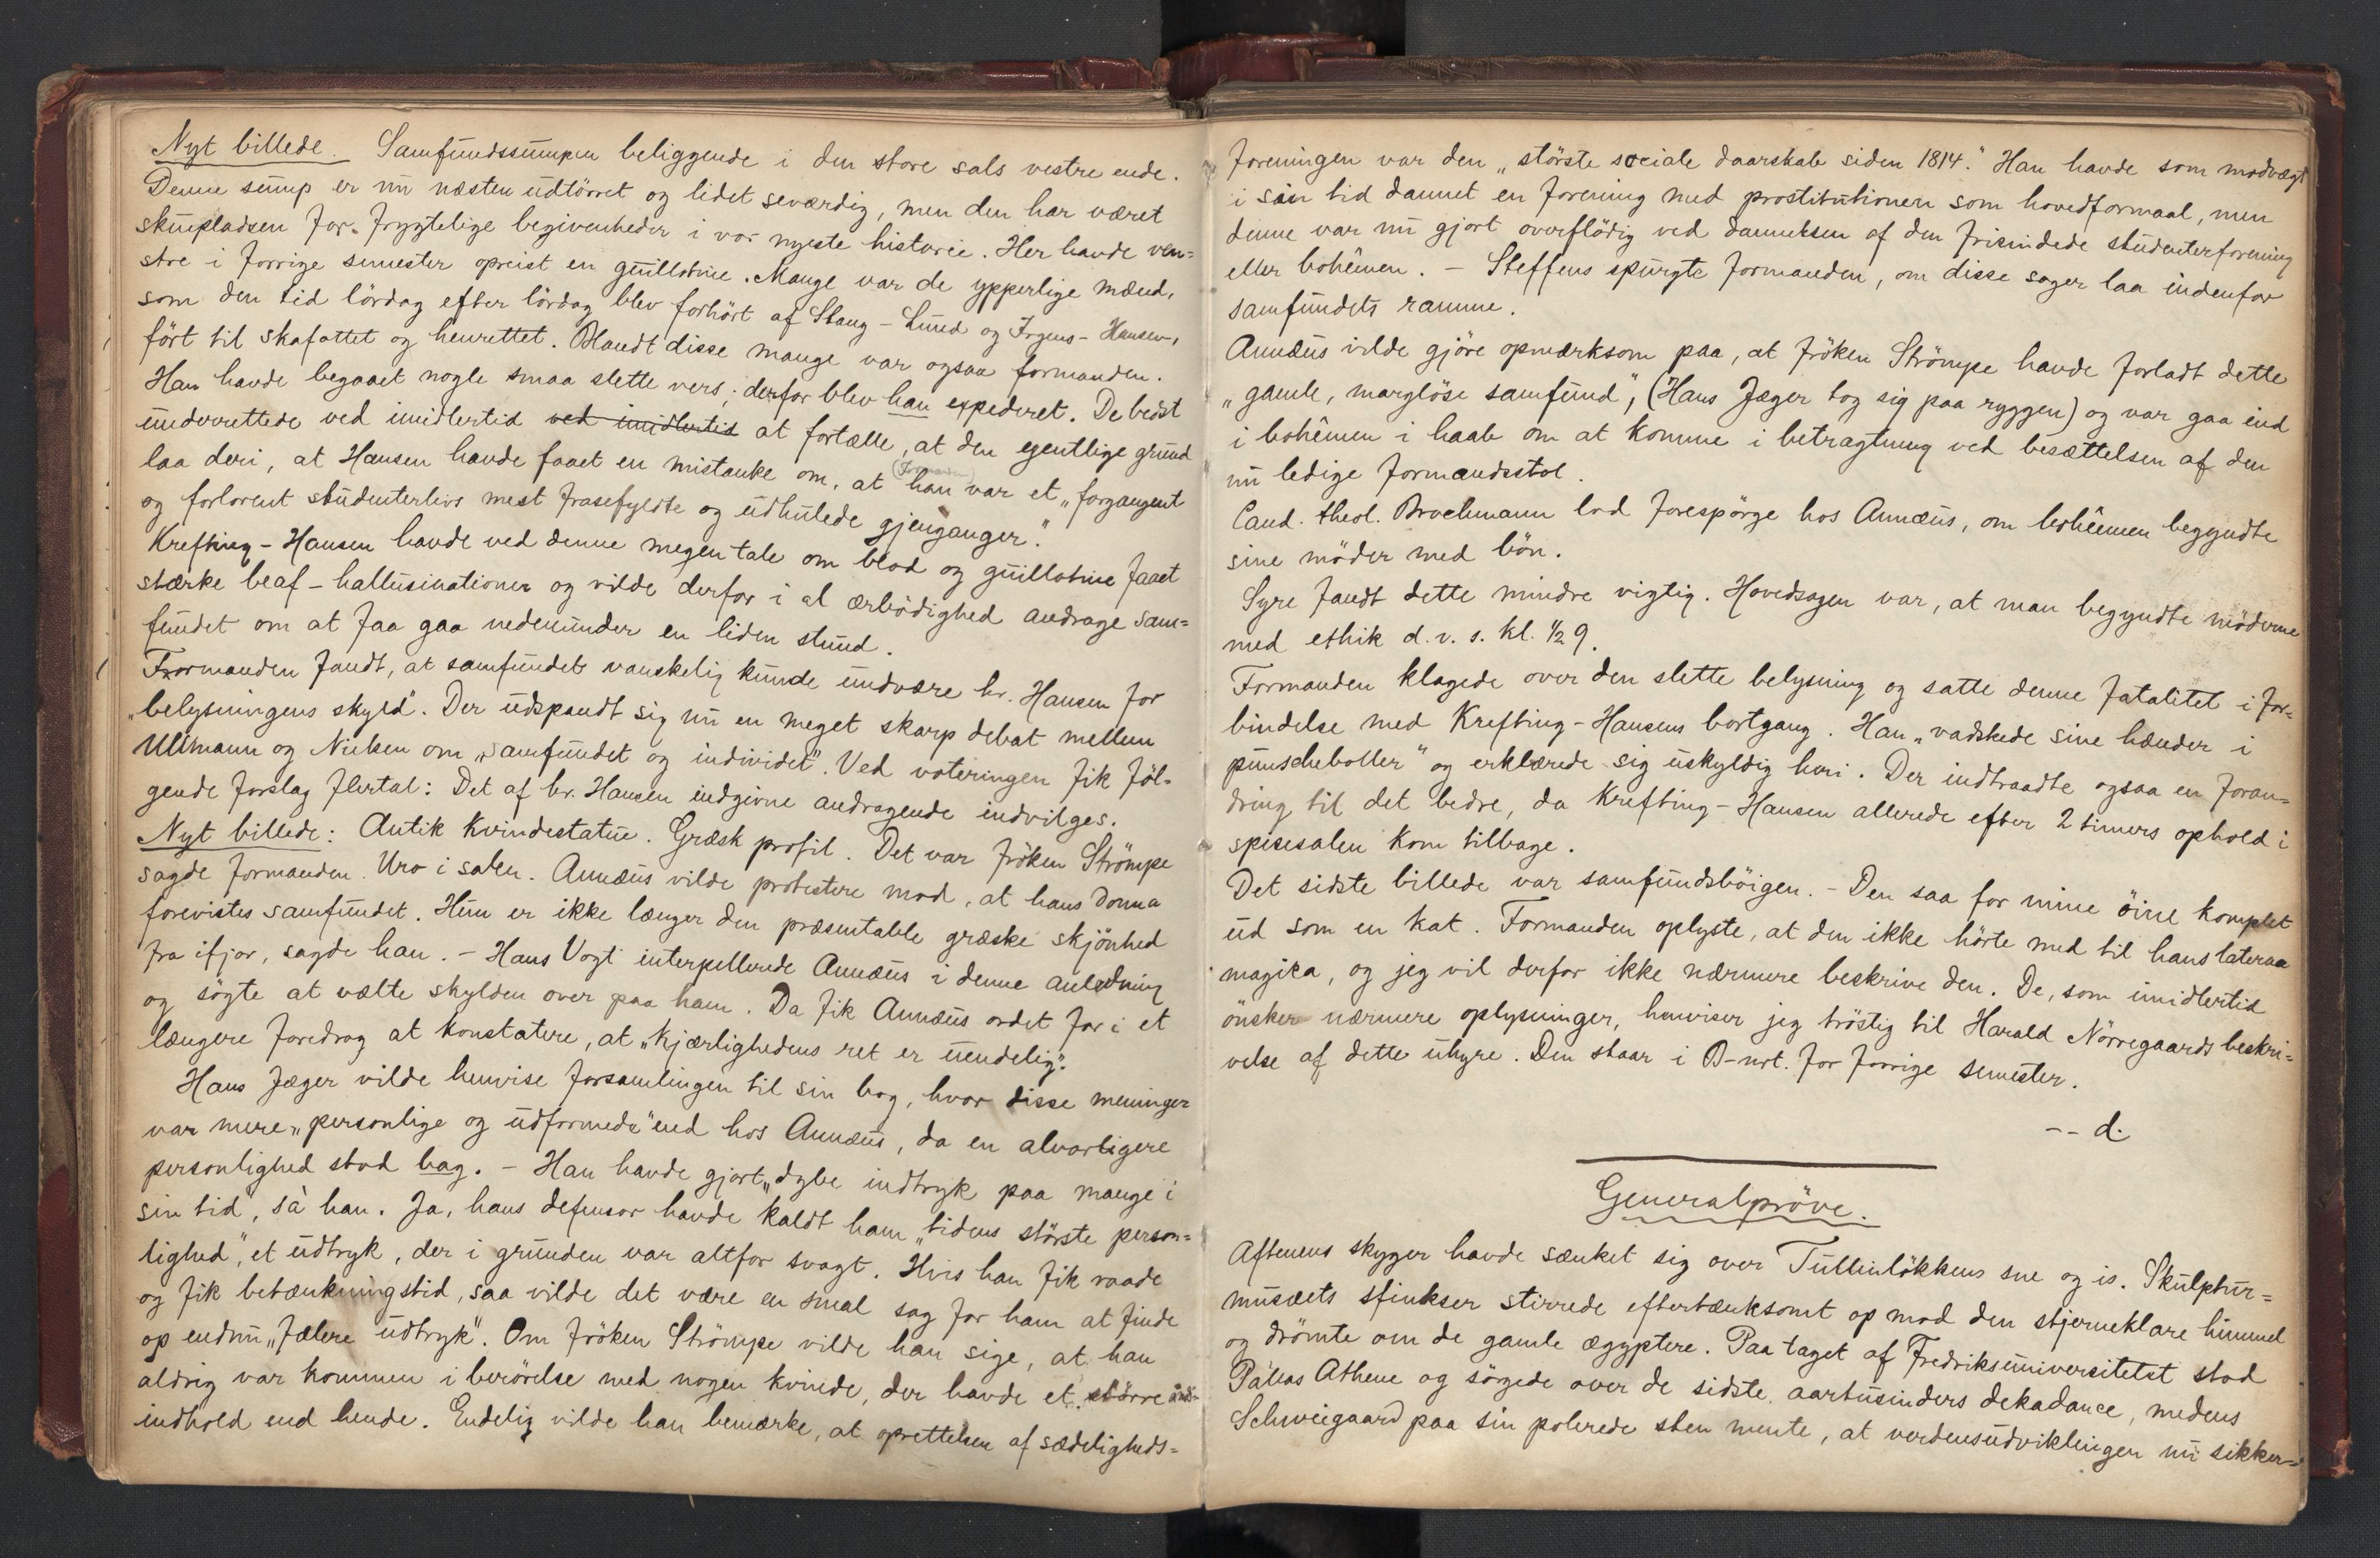 Nyt billede. Samfundssumpen beliggende i den store sals vestre ende.
Denne sump er nu næsten udtörret og lidet seværdig, men den har været
skuepladsen for frygtelige begivenheder i vor nyeste historie. Her havde ven=
stre i forrige semester opreist en guillotine. Mange var de ypperlige mænd,
som den tid lördag efter lördag blev forhört af Stang-Lund og Irgens-Hansen,
fört til skafottet og henrettet. Blandt disse mange var ogsaa formanden.
Han havde begaaet nogle smaa slette vers; derfor blev han expederet. De bedst
underrettede ved imidlertid ved imidlertid at fortælle, at den egentlige grund
laa deri, at Hansen havde faaet en mistanke om, at han (Formanden) var et „forgangent
og forlorent studenterlivs mest frasefyldte og udhulede gjenganger."
Krefting-Hansen havde ved denne megen tale om blod og guillotine faaet
stærke beaf-hallusinationer og vilde derfor i al ærbödighed andrage sam=
fundet om at faa gaa nedenunder en liden stund.
Formanden fandt, at samfundet vanskelig kunde undvære hr. Hansen for
„belysningens skyld". Der udspandt sig nu en meget skarp debat mellem
Ullmann og Nielsen om „samfundet og individet". Ved voteringen fik föl-
gende forslag flertal: Det af hr. Hansen indgivne andragende indvilges.
Nyt billede: Antik kvindestatue. Græsk profil. Det var fröken Strömpe
sagde formanden. Uro i salen. Annæus vilde protestere mod, at hans donna
forevistes samfundet. Hun er ikke længer den præsentable græske skjönhed
fra ifjor, sagde han. - Hans Vogt interpellerede Annæus i denne anledning
og sögte at vælte skylden over paa ham. Da fik Annæus ordet for i et
længere foredrag at konstatere, at „kjærlighedens ret er uendelig".
Hans Jæger vilde henvise forsamlingen til sin bog, hvor disse meninger
var mere „personlige og udformede" end hos Annæus, da en alvorligere
personlighed stod bag. - Han havde gjort „dybe indtryk paa mange i
sin tid", sà han. Ja, hans defensor havde kaldt ham „tidens störste person=
lighed", et udtryk, der i grunden var altfor svagt. Hvis han fik raade
og fik betænkningstid, saa vilde det være en smal sag for ham at finde
op endnu „fælere udtryk". Om fröken Strömpe vilde han sige, at han
aldrig var kommen i berörelse med nogen kvinde, der havde et större
indhold end hende. Endelig vilde han bemærke, at oprettelsen af sædeligheds=
foreningen var den „störste sociale daarskab siden 1814." Han havde som modvægt
i sin tid dannet en forening med prostitutionen som hovedformaal, men
denne var nu gjort overflödig ved dannelsen af den frisindede studenterforening
eller bohêmen. - Steffens spurgte formanden, om disse sager laa indenfor
samfundets ramme.
Annæus vilde gjöre opmærksom paa, at fröken Strömpe havde forladt dette
„gamle, marglöse samfund", (Hans Jæger tog sig paa ryggen) og var gaa ind
i bohêmen i haab om at komme i betragtning ved besættelsen af den
nu ledige formandsstol.
Cand. theol. Brochmann lod forespörge hos Annæus, om bohêmen begyndte
sine möder med bön.
Syre fandt dette mindre vigtig. Hovedsagen var, at man begyndte möderne
med ethik d. v. s. kl. 1/2 9.
Formanden klagede over den slette belysning og satte denne fatalitet i for=
bindelse med Krefting-Hansens bortgang. Han „vadskede sine hænder i
punscheboller" og erklærede sig uskyldig heri. Der indtraadte ogsaa en foran=
dring til det bedre, da Krefting-Hansen allerede efter 2 timers ophold i
spisesalen kom tilbage.
Det sidste billede var samfundsböigen. - Den saa for mine öine komplet
ud som en kat. Formanden oplyste, at den ikke hörte med til hans laterna
magika, og jeg vil derfor ikke nærmere beskrive den. De, som imidlertid
önsker nærmere oplysninger, henviser jeg tröstig til Harald Nörregaards beskri=
velse af dette uhyre. Den staar i B-nrt. for forrige semester.
-- d.
Generalpröve.
Aftenens skygger havde sænket sig over Tullinlökkens sne og is. Skulptur=
musæets sfinkser stirrede eftertænksomt op mod den stjerneklare himmel
og drömte om de gamle ægyptere. Paa taget af Fredriksuniversitetet stod
Pallas Athene og sörgede over de sidste aartusinders dekadance, medens
Schweigaard paa sin polerede sten mente, at verdensudviklingen nu sikker=